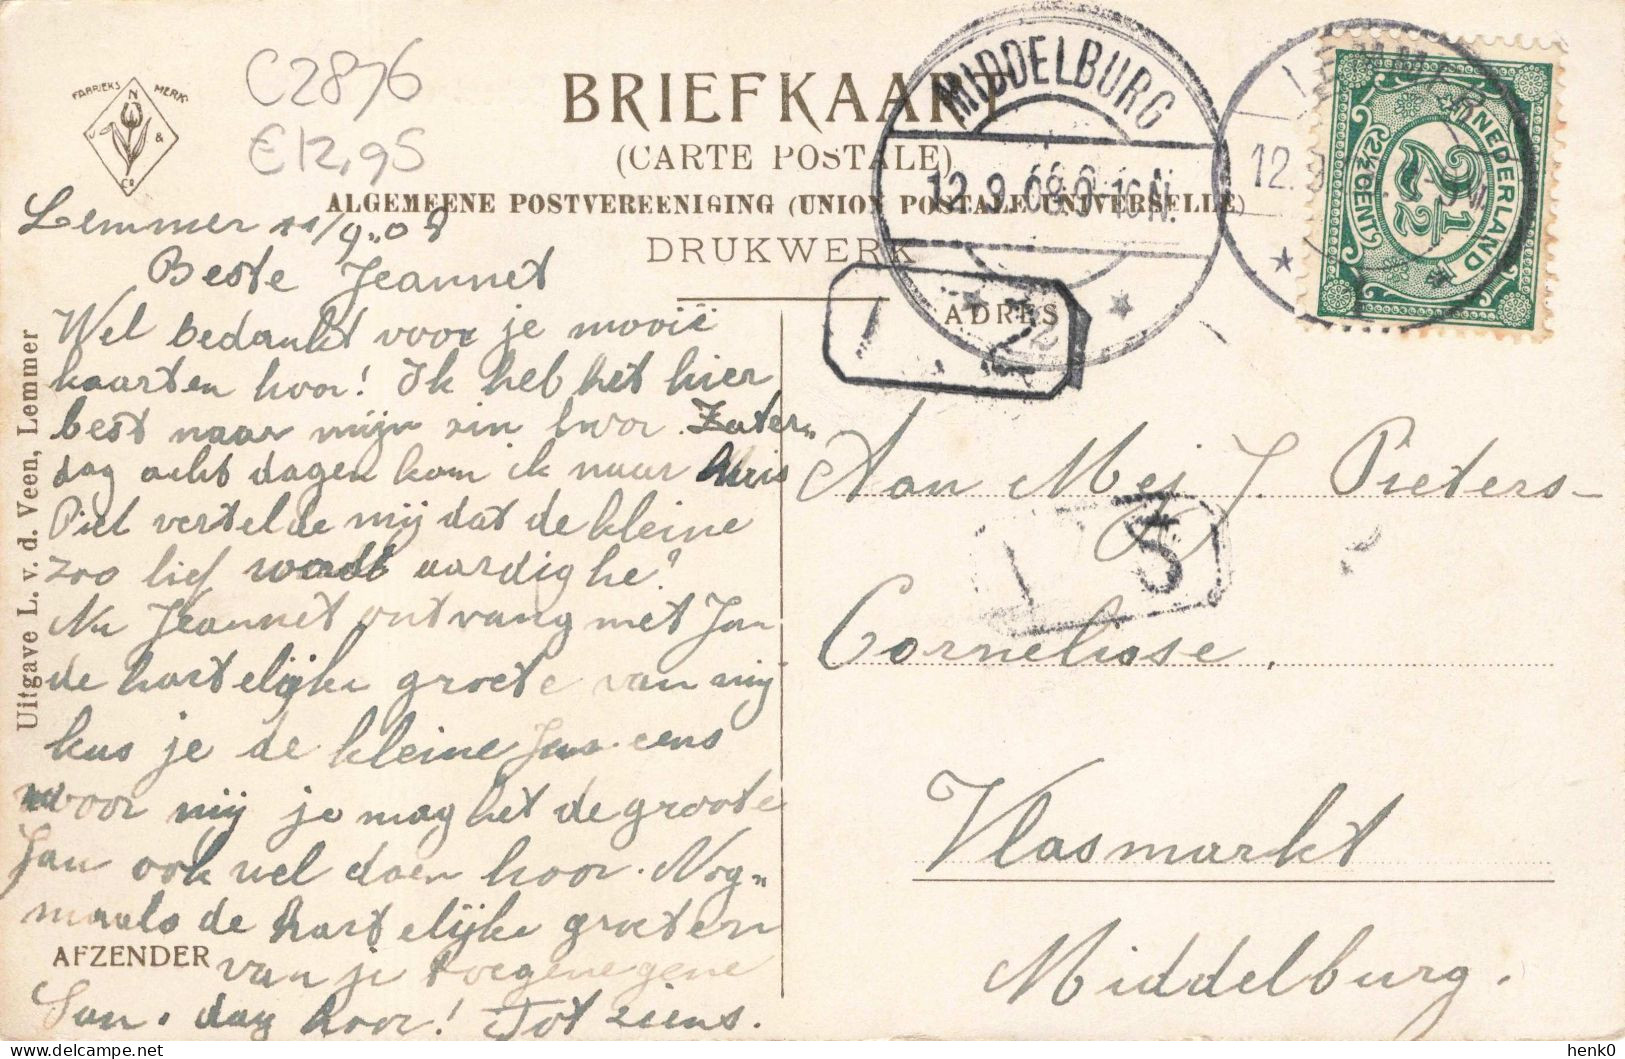 C2876
€12,95
FABRIEKS MERK
N
J & Co
BRIEFKAART
(CARTE POSTALE)
ALGEMEENE POSTVEREENIGING (UNION POSTALE UNIVERSELLE)
DRUKWERK
ADRES
MIDDELBURG
12.9.08.9-10N.
LEMMER
12.9
NEDERLAND
2½
2½ CENT
Lemmer 11/9.,08
Beste Jeannet
Wel bedankt voor je mooie
kaarten hoor! Ik heb het hier
best naar mijn zin hoor. Zater„
dag acht dagen kom ik naar huis
Piet vertelde mij dat de kleine
zoo lief wordt aardig he."
Nu Jeannet ontvang met Jan
de hartelijke groete van mij
kus je de kleine Jan eens
voor mij je mag het de groote
Jan ook wel doen hoor. Nog„
maals de hartelijke groeten
van je toegenegene
San. dag hoor! Tot ziens.
AFZENDER
Uitgave L. v. d. Veen, Lemmer
2
5
Aan Mej J. Pieters-
Cornelisse.
Vlasmarkt
Middelburg.
henk0